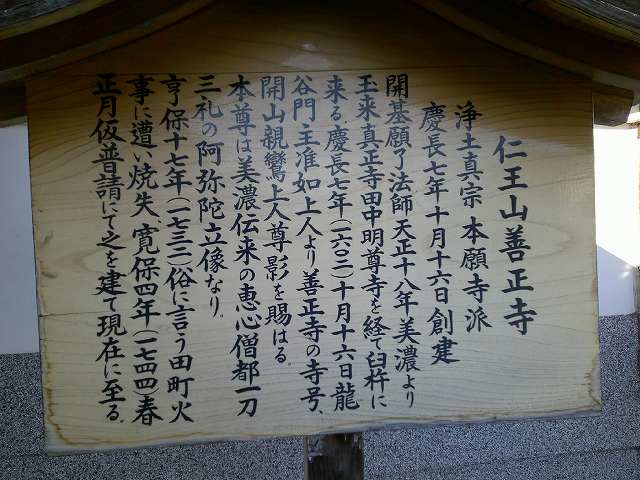 仁王山善正寺
浄土真宗 本願寺派
慶長七年十月十六日創建
開基願了法師天正十八年美濃より
玉来真正寺田中明尊寺を経て臼杵に
来る、慶長七年(一六〇二)十月十六日龍
谷門主准如上人より善正寺の寺号、
開山親鸞上人尊影を賜はる。
本尊は美濃伝来の恵心僧都一刀
三礼の阿弥陀立像なり。
享保十七年(一七三二)俗に言う田町火
事に遭い焼失、寛保四年(一七四四)春
正月仮普請にて之を建て現在に至る。